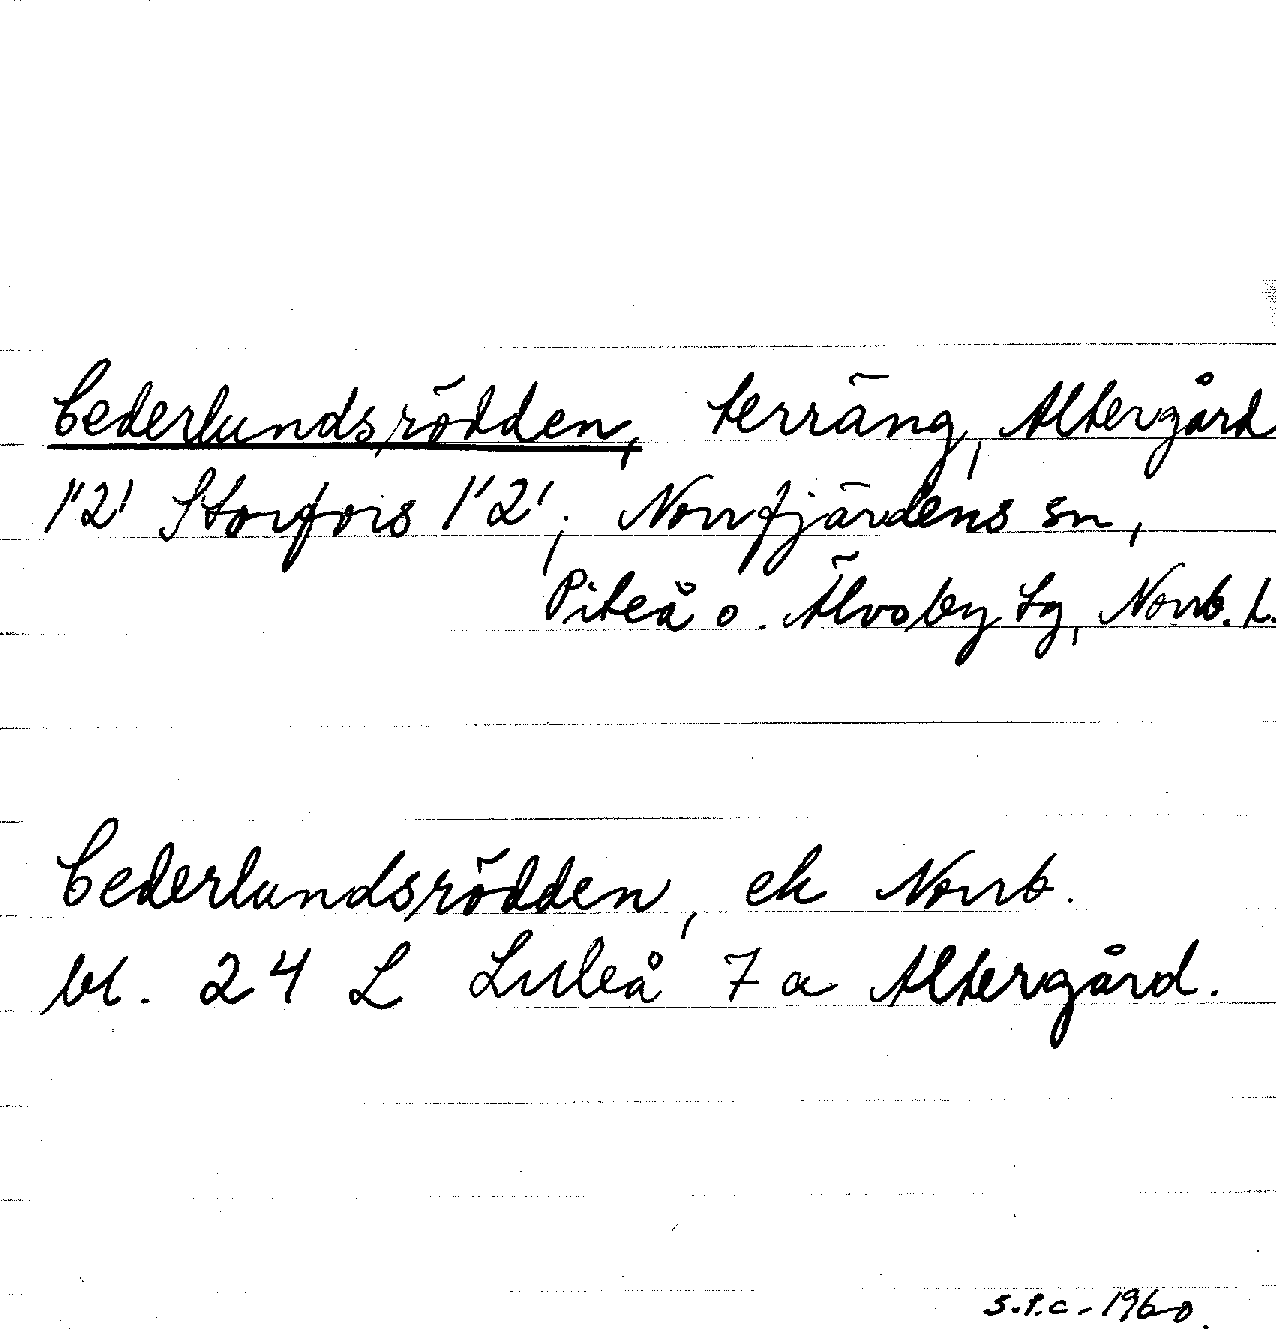 Cederlundsrödden, terräng, Altergård
1'2' Storfors 1'2', Norrfjärdens sn,
Piteå o. Älvsby tg, Norrb. l.
Cederlundsrödden, ek Norrb.
bl. 24 L Luleå 7 a Altergård.
s.t.c. 1960.